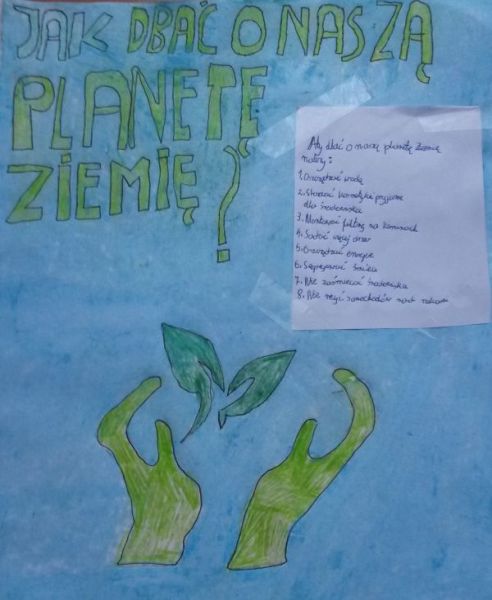 JAK DBAĆ O NASZĄ
PLANETĘ
ZIEMIĘ?
Aby dbać o naszą planetę ziemię
należy:
1. Oszczędzać wodę
2. Stosować kosmetyki przyjazne
dla środowiska
3. Montować filtry na kominach
4. Sadzić więcej drzew
5. Oszczędzać energię
6. Segregować śmieci
7. Nie zaśmiecać środowiska
8. Nie myć samochodów nad